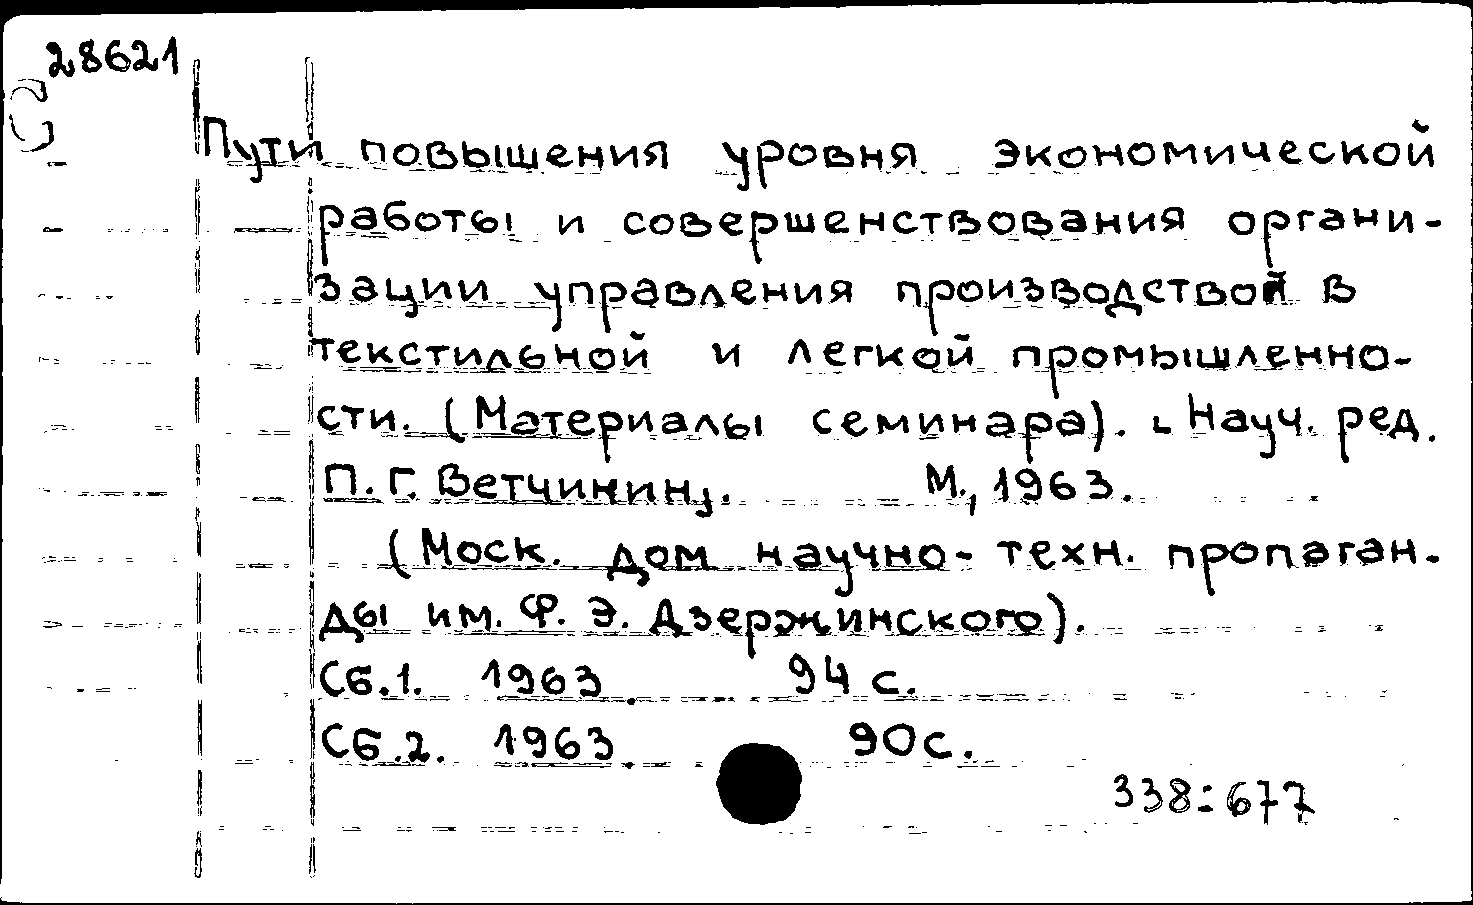 28621
Пути повышения уровня экономической
работы и совершенствования органи-
зации управления производством в
текстильной и легкой промышленно-
сти. (Материалы семинара). Науч. ред.
П. Г. Ветчинин,. М., 1963.
(Моск. дом научно-техн. пропаган.
ды им. Ф. Э. Дзержинского).
Сб.1. 1963. 94 с.
Сб.2. 1963. 90с.
338:677